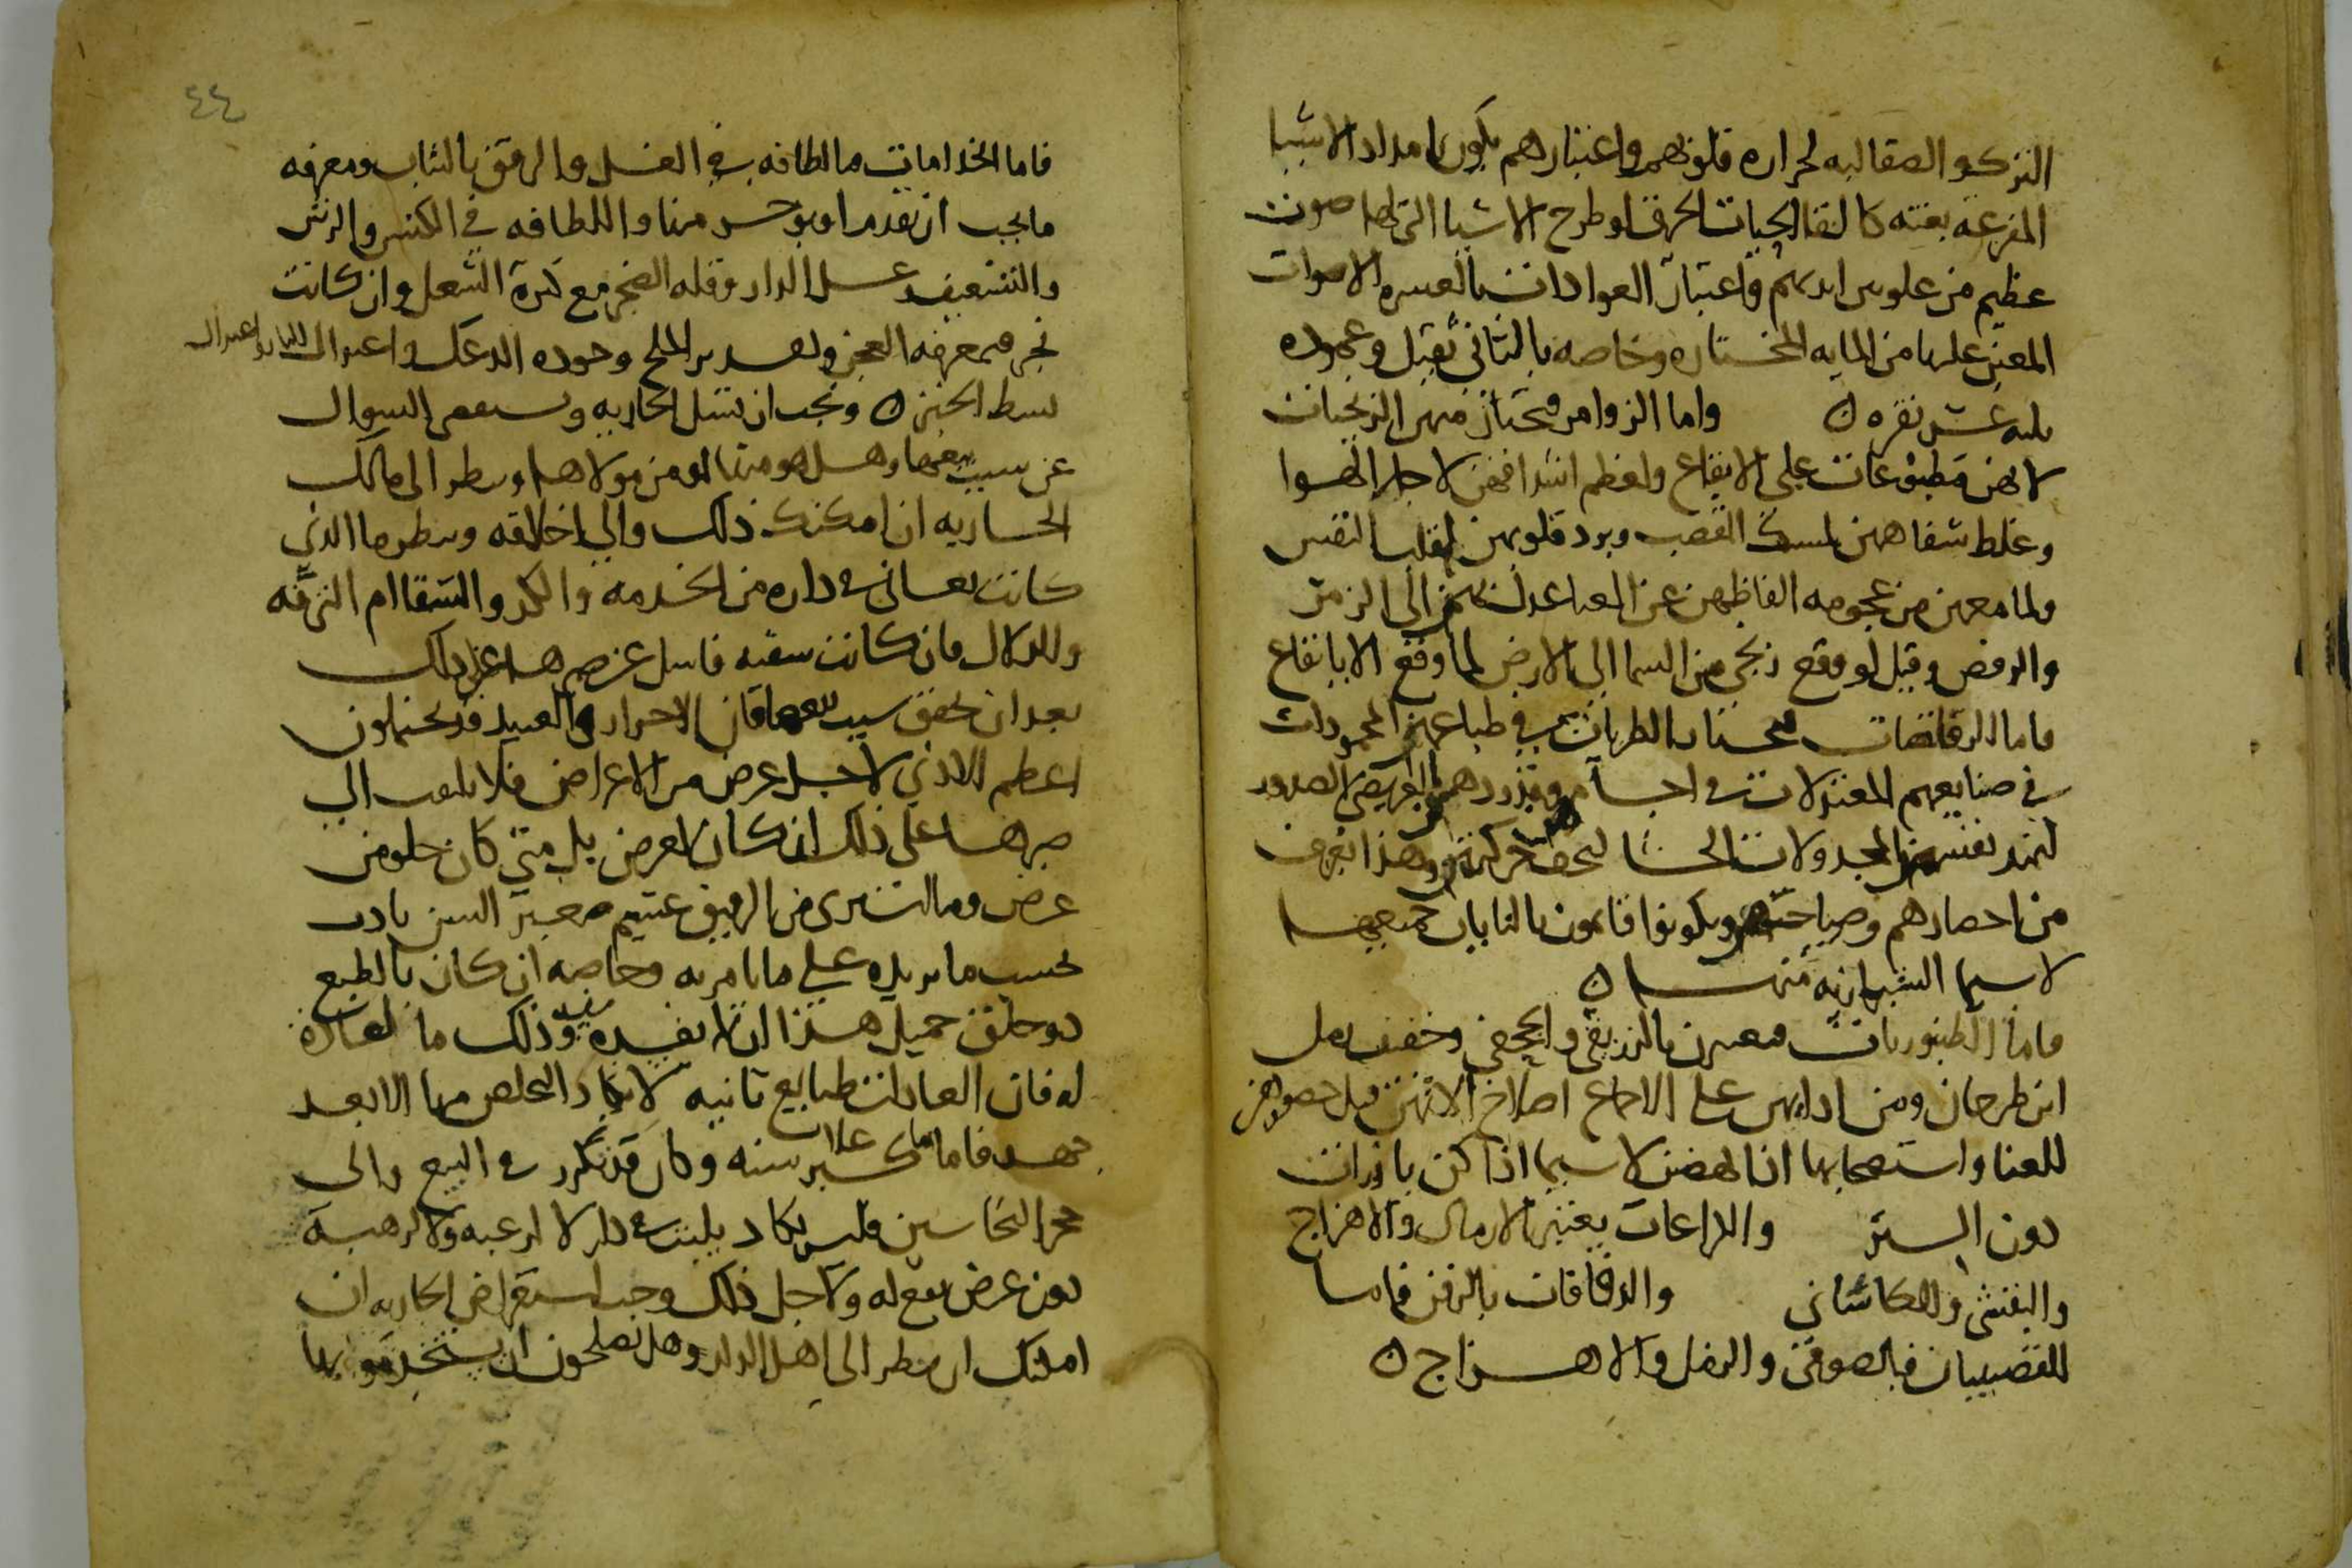 الترك والصقالبه لحراره قلوبهم واعتبارهم يكون بامداد الاشيا
المفزعه بغته كالقا الحيات الحرق او طرح الاشيا التي لها صوت
عظيم من علو بين ايديهم واعتبار العوادات بالعسره الاصوات
المعين عليها من المايه المختاره وخاصه بالثاني ثقيل وعموده
عشر نقره ن واما الزوامر فتختار منهن الزنجيات
لانهن مطبوعات على الايقاع ولعظم اشداقهن لاجل الهوا
وغلظ شفاههن لمسك القصب وبرد قلوبهن لقلب النفس
ولما معهن من عجومه الفاظهن عن الغنا عدلت بهن الى الزمر
والرقص وقيل لو وقع زنجي من السما الى الارض لما وقع الا بايقاع
فاما الرقاصات فتختار الطربات في طباعهن المجودات
في صنايعهم المعتدلات في اجسامهم العريضي الصدور
نفسهن المجدولات الحشا لتخف حركتهن وهذا تعرف
من احضارهم وصياحتهم ويكونوا قايمون بالنايات جميعها
لاسيما الشهرازيه منها ن
فاما الطنبوريات بالزريقي والجحفي وخفيف رمل
ابن طرخان ومن ادابهن على الاجماع اصلاح الاتهن قبل حضورهن
للغنا واستصحابها اذا نهضن لاسيما اذا كن بارزات
دون الستر والذراعات يغنين الارمال والاهزاج
والبغتشي والكاشاني والدفاقات بالزفن فاما
القضيبيات فبالصوفي والرمل والاهزاج ن
٤٤
فاما الخدامات فالطافه في الغسل والرفق بالثياب ومعرفه
مايجب ان يقدم او يوخر منها واللطافه في الكنس والرش
والتشعيف وغسل الدار وقله الضجر مع كثرة الشغل وان كانت
تخبز فمعرفه العجن وتقدير الملح وجوده الدعك واعتدال النار واعتدال
بسط الخبز ن ويجب ان تسل الجاريه وتستقصي السوال
عن سبب بيعها وهل هو منها او من مولاها وينظر الى مالك
الجاريه ان امكنك ذلك والي اخلاقه وينظر ما الذي
كانت تعانى في داره من الخدمه والكد والشقا ام الترفه
والدلال فان كانت شقيه فاسل عن صبرها على ذلك
بعد ان تحقق سبب بيعها فان الاحرار والعبيد قد يحتملون
اعظم الاذي لاجل عرض من الاعراض فلا يلتفت الي
صبرها على ذلك ان كان لعرض بل متي كان خلو من
عرض ومااشتري من الرقيق عتيم صغير السن تادب
بحسب ما يريده على ما يامر به وخاصه ان كان بالطبع
ذو خلق جميل هذا ان لم يفيده مفيد وذلك ما لعادة
له فان العادات طبايع ثانيه لا يكاد التخلص منها الا بعد
جهد فاما ما علا وكبر سنه وكان قد تكرر في البيع والى
حجر النخاسين فليس يكاد يلبث في دار لا لرغبه ولا لرهبه
دون عرض يقع له ولاجل ذلك وجب استعراض الجاريه ان
امكنك ان ينظر الى اهل الدار وهل يصلحون ان يستخدمو بها